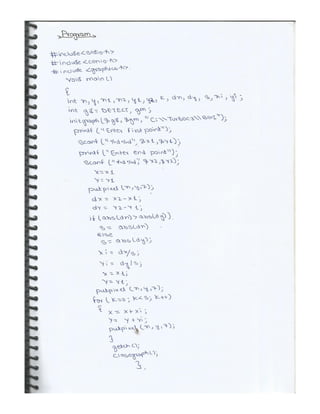 Program
#include<stdio.h>
#include<conio.h>
#include<graphics.h>
void main()
{
int x, y, x1, x2, y1, y2, k, dx, dy, s, xi, yi;
int gd = DETECT, gm;
initgraph(&gd, &gm, "C:\\Turboc3\\BGI");
printf("Enter first point");
scanf("%d%d", &x1, &y1);
printf("Enter end point");
scanf("%d%d", &x2, &y2);
x=x1;
y=y1
putpixel(x,y,7);
dx = x2-x1;
dy = y2-y1;
if(abs(dx)>abs(dy))
s= abs(dx)
else
s= abs(dy);
xi = dx/s;
yi = dy/s;
x=x1;
y=y1;
putpixel(x,y,7);
for(k=0; k<s; k++)
{ x = x+xi;
y= y+yi;
putpixel(x,y,7);
}
getch();
closegraph();
}